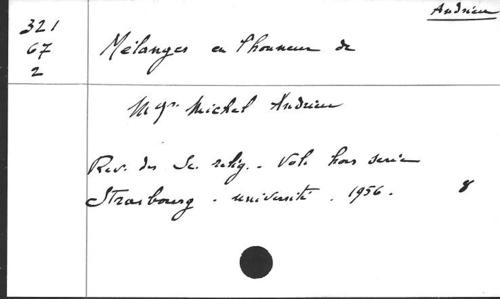 Andrieu
321
67
2
Mélanges en l'honneur de
Mgr Michel Andrieu
Rev. des Sc. relig. - Vol. hors serie
Strasbourg - université. 1956. 8